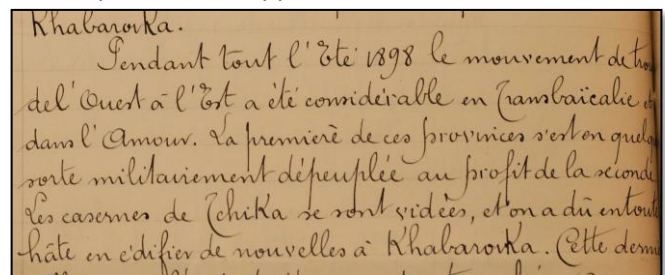 Khabarovka.
Pendant tout l'Eté 1898 le mouvement de
de l'Ouest à l'Est a été considérable en Transbaïcalie et
dans l'Amour. La première de ces provinces s'est en quelq
sorte militairement dépeuplée au profit de la seconde
Les casernes de Tchika se sont vidées, et on a dû en tout
hâte en édifier de nouvelles à Khabarovka. Cette derni